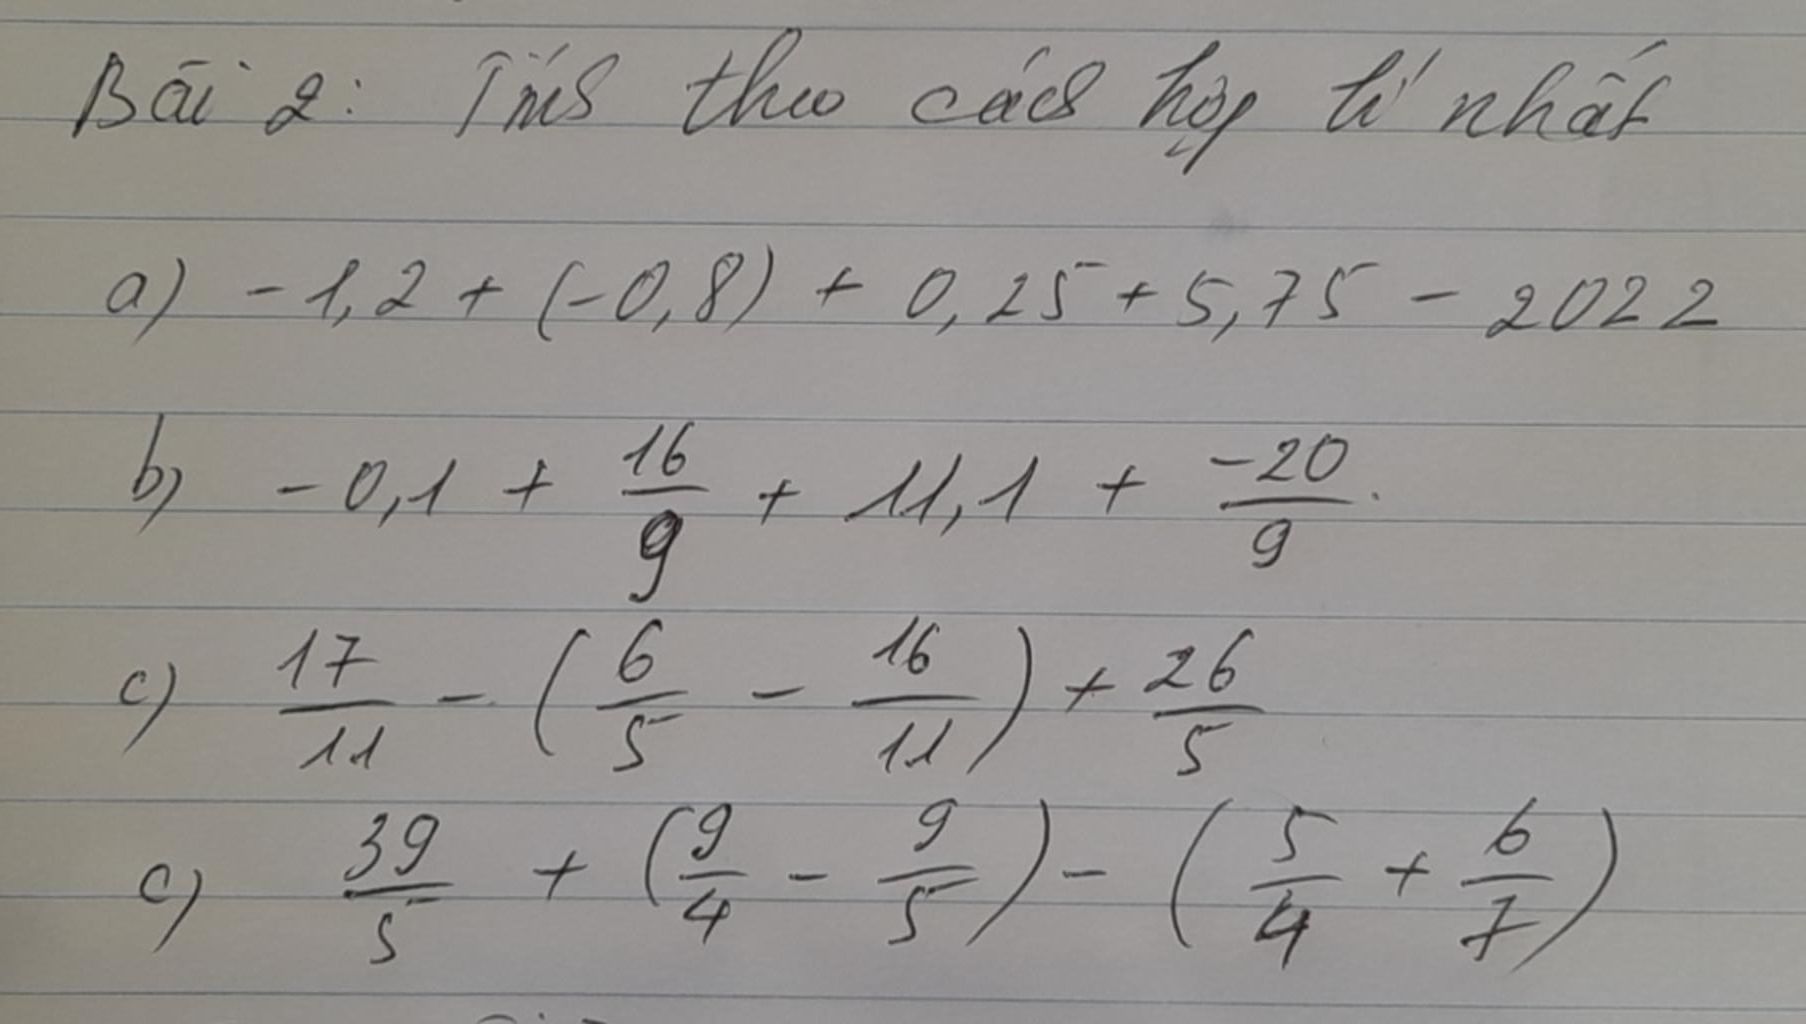 Bài 2: Tính theo cách hợp lí nhất
a) -1,2 + (-0,8) + 0,25 + 5,75 - 2022
b) -0,1 + 16/9 + 11,1 + -20/9.
c) 17/11 - (6/5 - 16/11) + 26/5
c) 39/5 + (9/4 - 9/5) - (5/4 + 6/7)